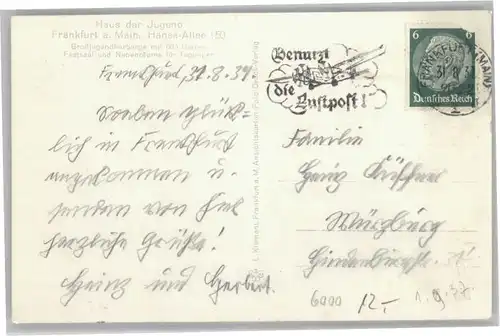 Haus der Jugend
Frankfurt a. Main, Hansa-Allee 150
Großjugendherberge mit 601 Betten
Festsaal und Nebenräume für Tagungen
Frankfurt, 31.8.34
Soeben glück-
lich in Frankfurt
angekommen u.
senden von hier
herzliche Grüße!
Heinz und Herbert.
Benutzt
die Luftpost!
6 6
Deutsches Reich
FRANKFURT (MAIN)
31.8.3
Familie
Heinz Küffner
Würzburg
Hindenburgstr.
6000 12,- 1.9.38